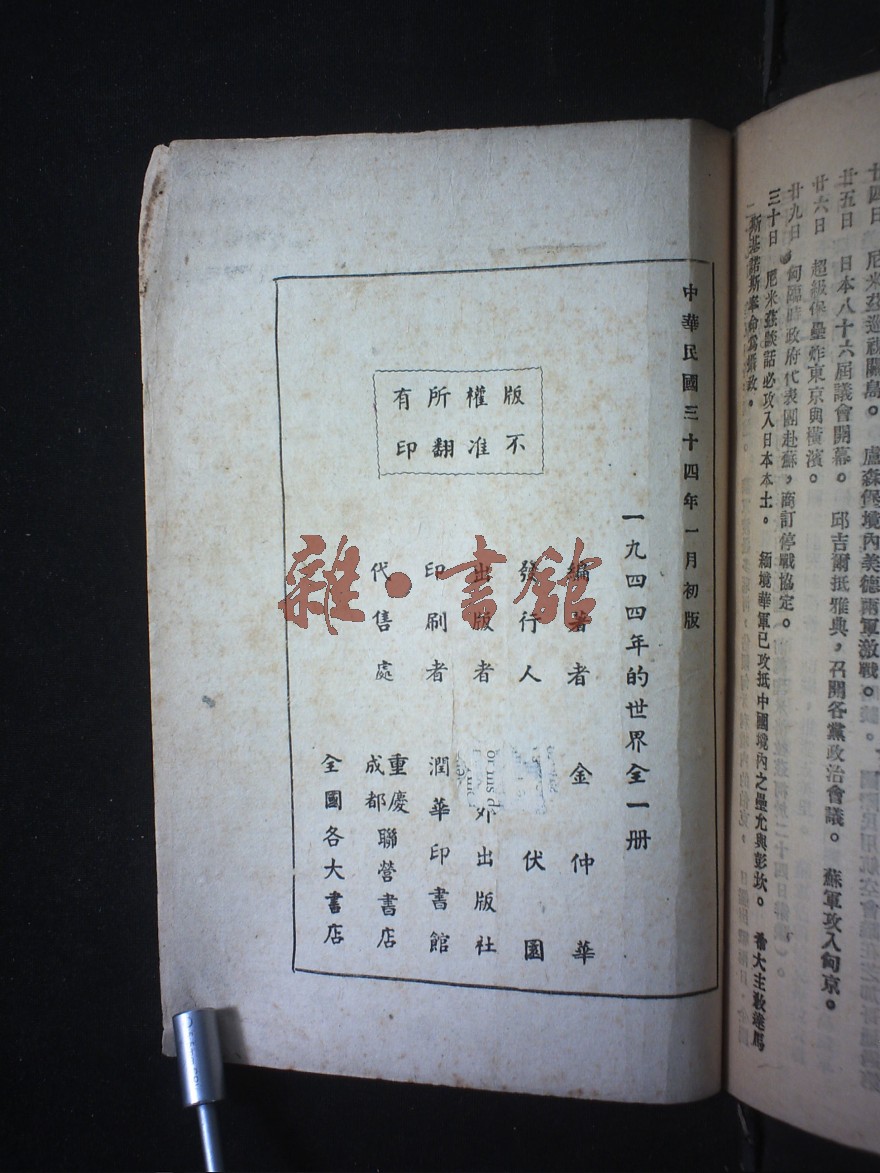 十四日 尼米茲巡視關島。 盧森堡境內美德兩軍激戰。
廿五日 日本八十六屆議會開幕。 邱吉爾抵雅典，召開各黨政治會議。 蘇軍攻入匈京。
廿六日 超級保壘炸東京與橫濱。
廿九日 匈臨時政府代表團赴蘇，商訂停戰協定。
三十日 尼米茲談話必攻入日本本土。 緬境華軍已攻抵中國境內之壘允與彭坎。 希大主教達馬
斯基諾斯奉命為攝政。
中華民國三十四年一月初版
一九四四年的世界全一册
編著者 金仲華
發行人 伏園
出版者 外出版社
印刷者 潤華印書館
代售處 重慶成都聯營書店
全國各大書店
版權所有
不准翻印
雜·書舘